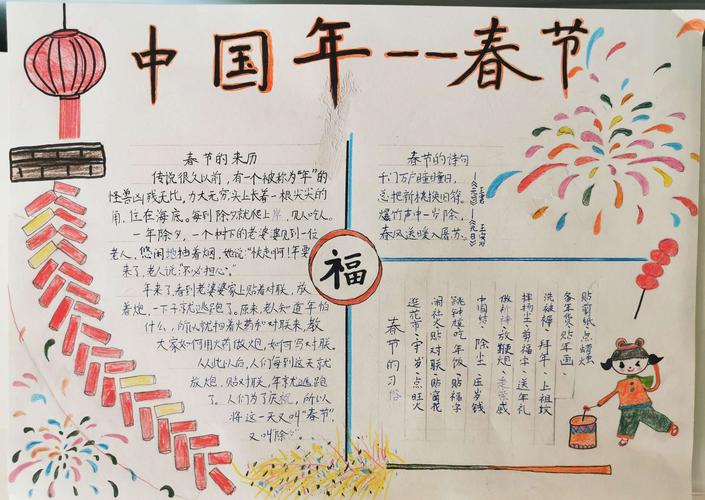 中国年——春节
春节的来历
传说很久以前，有一个被称为“年”的
怪兽凶残无比，力大无穷，头上长着一根尖尖的
角，住在海底。每到除夕就爬上岸，见人吃人。
一年除夕，一个村下的老婆婆见到一位
老人，悠闲地抽着烟，她说：“快走啊！年要
来了，老人说：“不必担心。”
年来了，看到老婆婆家上贴着对联，放
着炮，一下子就逃跑了。原来，老人知道年怕
什么，所以就扫着火药和对联来，教
大家如何用火药做炮，如何写对联
从此以后，人们每到这天就
放炮，贴对联，年就逃跑
了。人们为了庆祝，所以
将这一天又叫“春节”
又叫“除夕”。
福
春节的诗句
千门万户曈曈日，
总把新桃换旧符。
爆竹声中一岁除，
春风送暖入屠苏。
王安石
《元日》
贴剪纸·点蜡烛
备年货·贴年画
洗被褥·拜年·上祖坟
掸扬尘·剪福字·送年礼
做新衣·放鞭炮·走亲戚
中国结·除尘·压岁钱
跳钟馗·吃年饭·贴福字
闹社火·贴对联·贴窗花
逛花市·守岁·点旺火
春节的习俗